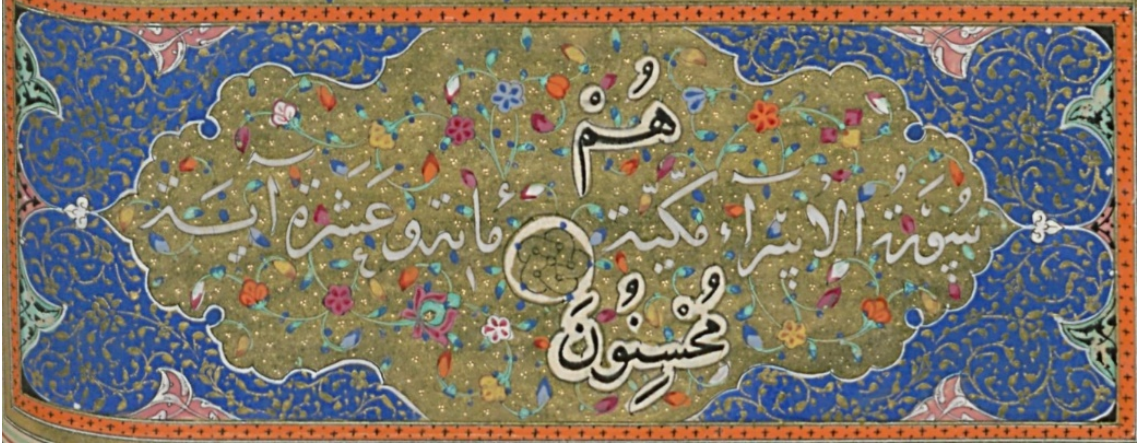 هُمْ
سُورَة الاسرآء مكّيّة مأية و عَشَرَة آية
مُحْسِنُونَ